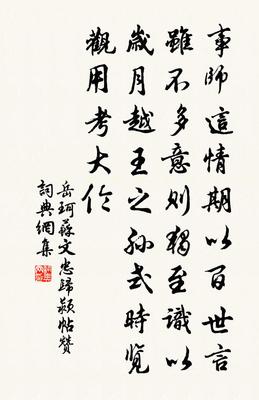 事師這情期以百世言
雖不多意則獨至識以
歲月越王之孫式時覽
觀用考大
岳珂蘇文忠歸潁帖贊
詞典網集